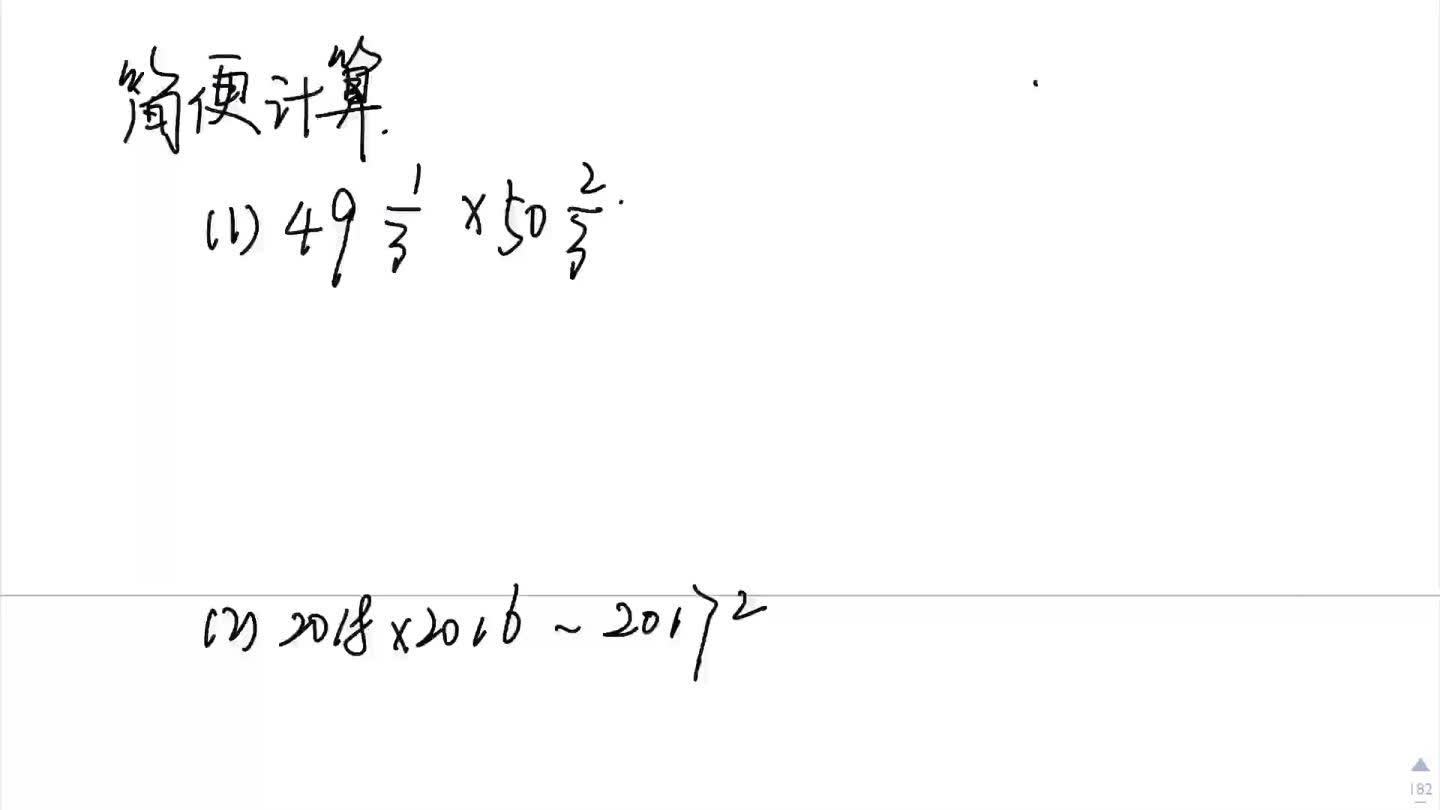 简便计算.
(1) 49 1/3 × 50 2/3.
(2) 2018×2016 ~ 2017²
182